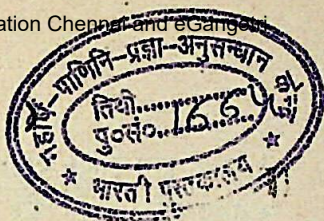 ation Chennai and eGangotri
महर्षि-पाणिनि-प्रज्ञा-अनुसन्धान
तिथी..............
पु०सं०..............
भारती पुस्तकालय